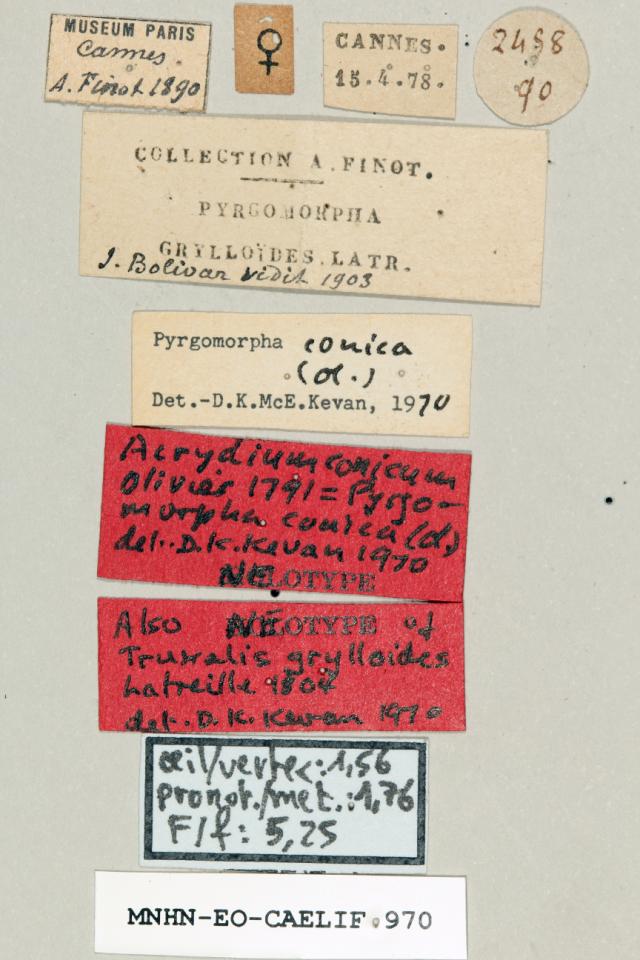 MUSEUM PARIS
Cannes.
A. Finot 1890
♀
CANNES.
15.4.78.
2458
90
COLLECTION A. FINOT.
PYRGOMORPHA
GRYLLOÏDES. LATR.
I. Bolivar vidit 1903
Pyrgomorpha conica
(Ol.)
Det.-D.K.McE.Kevan, 1970
Acrydium conicum
Olivier 1791 = Pyrgo-
morpha conica (Ol.)
det. D.K. Kevan 1970
NEOTYPE
Also NEOTYPE of
Truxalis grylloides
Latreille 1804
det. D.K. Kevan 1970
œil/vertex: 1,56
pronot./met.: 1,76
F/f: 5,25
MNHN-EO-CAELIF 970